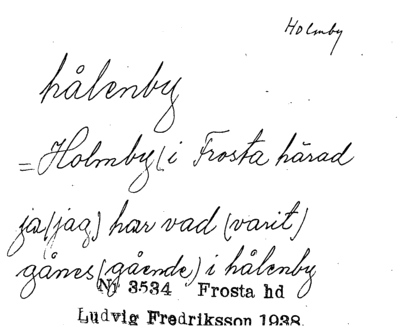 Holmby
hålenby
=Holmby (i Frosta härad
ja (jag) har vad (varit)
gånes (gående) i hålenby
Nr 3534 Frosta hd
Ludvig Fredriksson 1938.